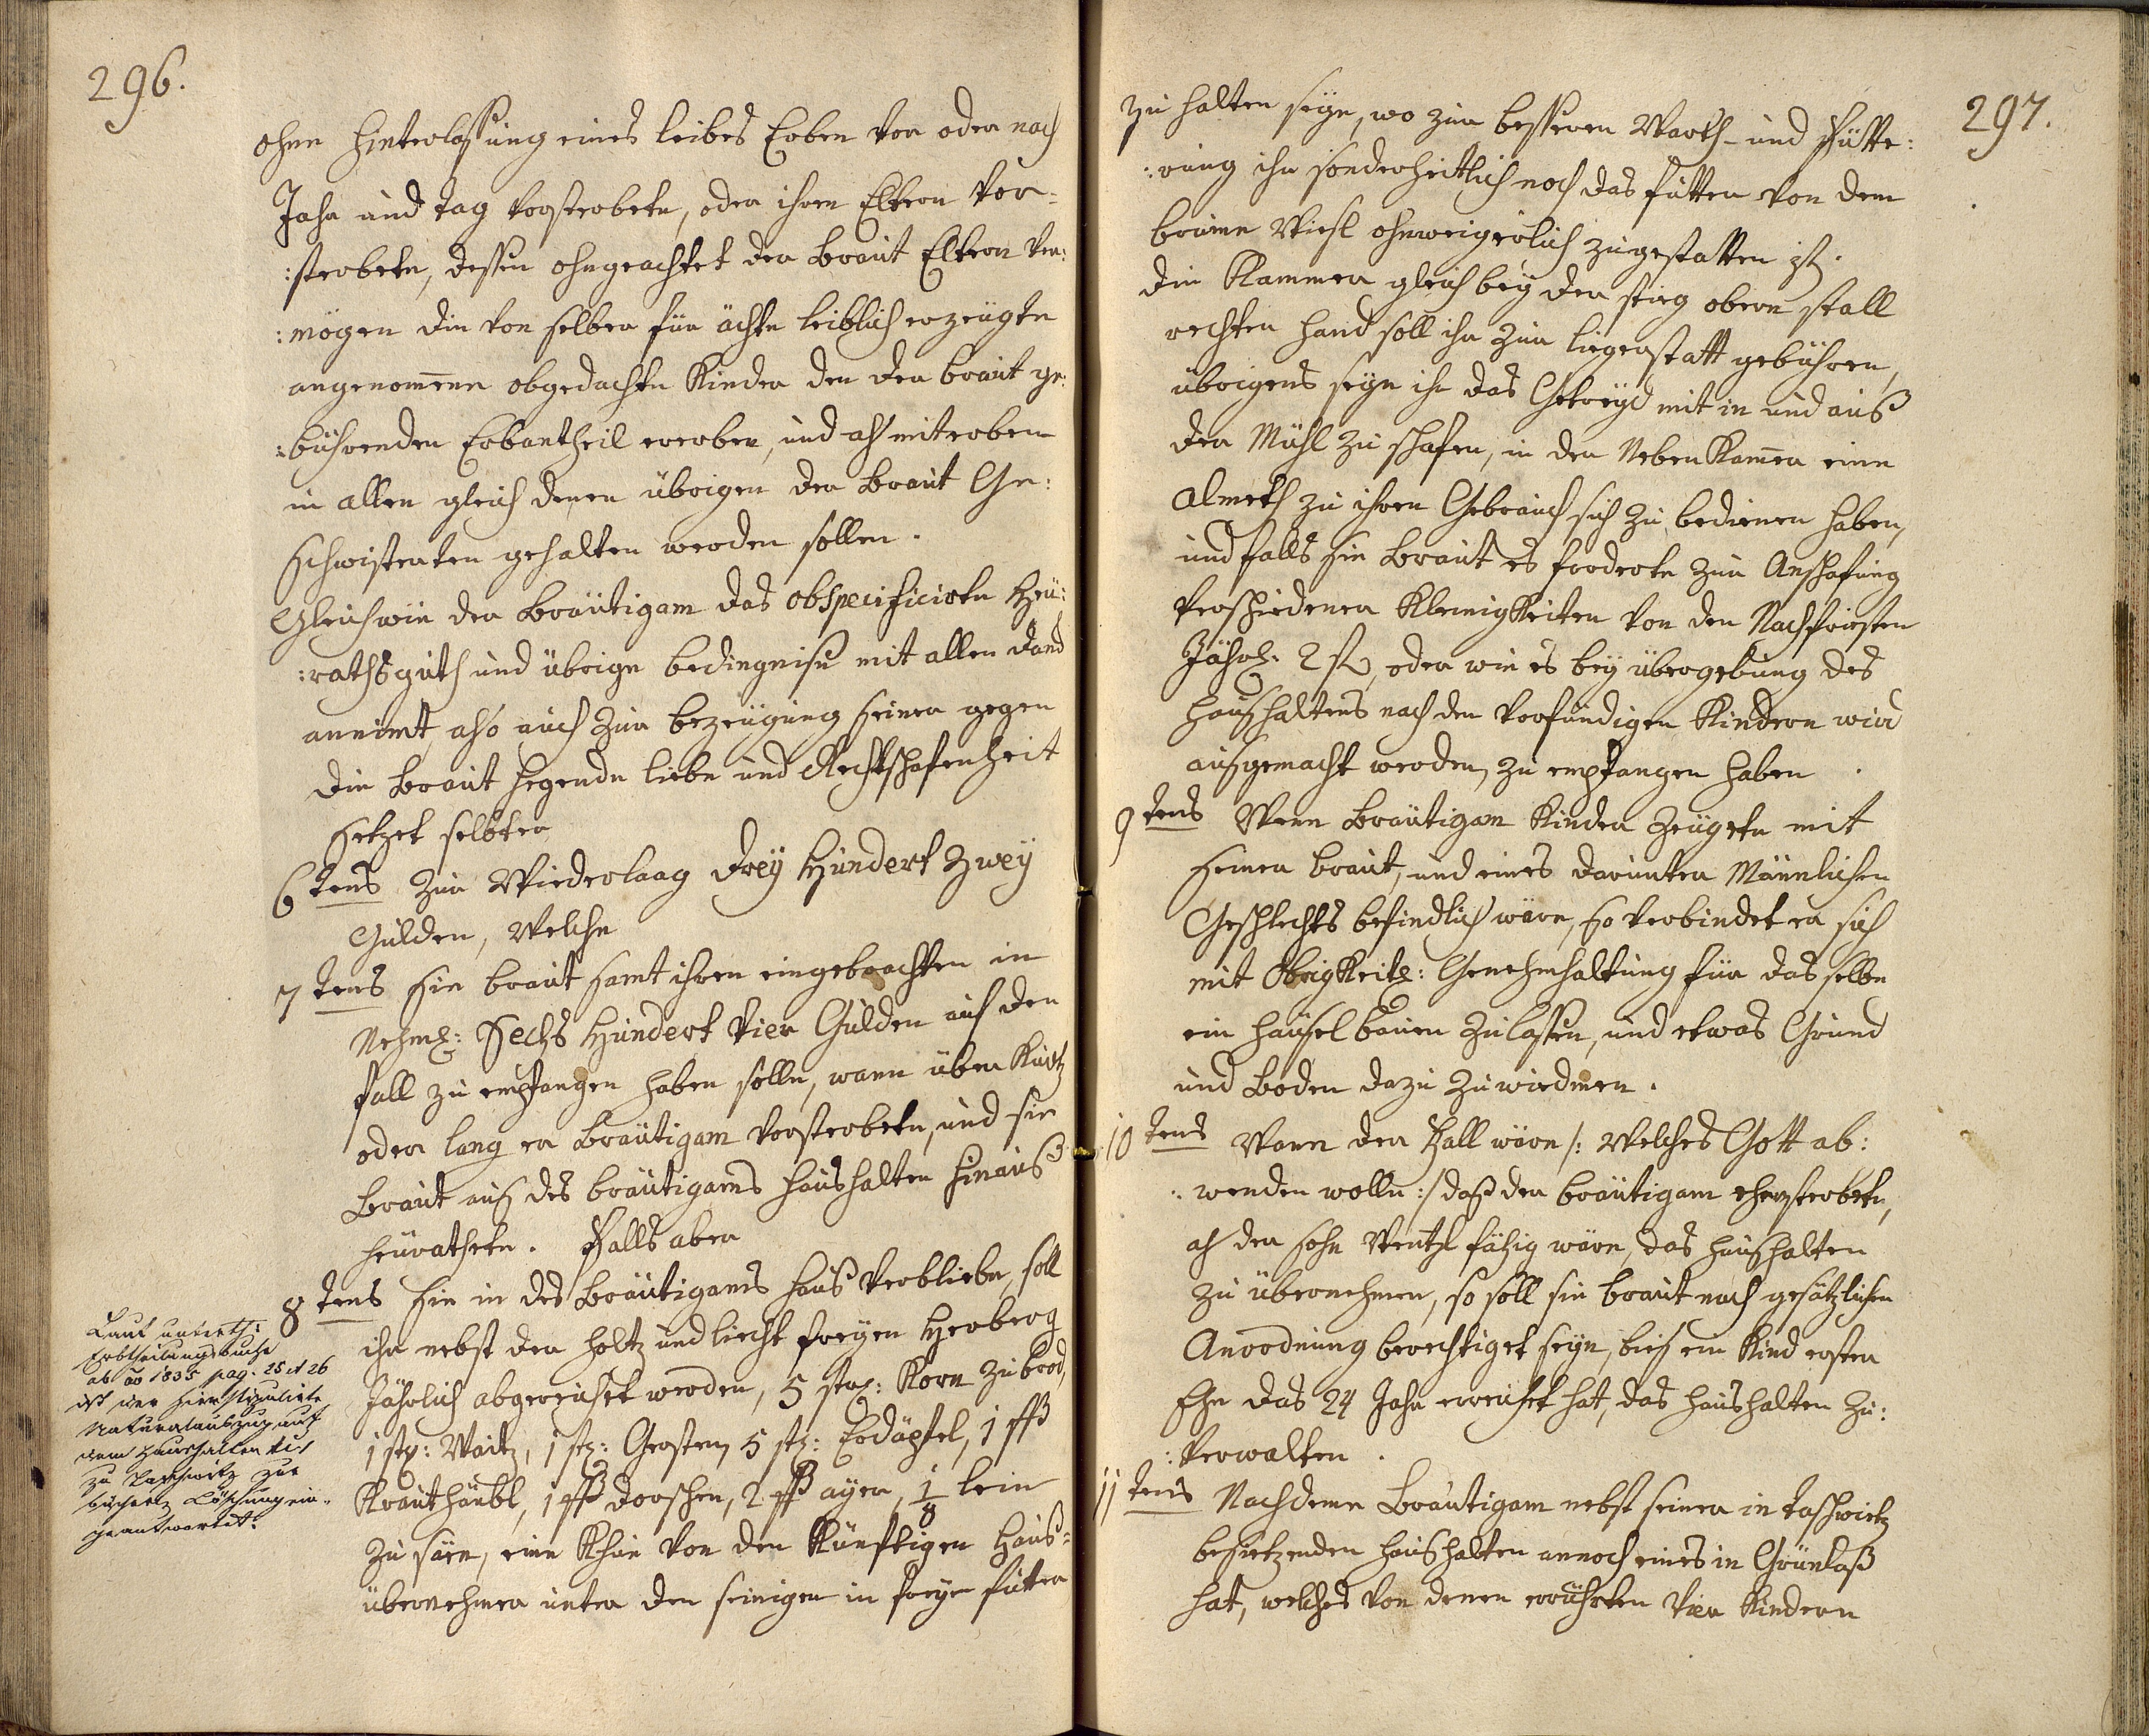 296.
ohne Hinterlassung eines leibes Erben vor oder nach
Jahr und Tag versterbete, oder ihren Eltern vor-
:sterbete, dessen ohngeachtet der Braut Eltern ver:
:mögen die von selber für ächte leiblich erzeugte
angenommene obgedachte Kinder den der Braut ge:
:bührenden Erbantheil ererben, und als miterben
in allen gleich denen übrigen der Braut Ge:
schwisterten gehalten werden sollen.
Gleichwie der Bräutigam das obspecificirte Heu:
:rathsguth und übrige bedingnise mit allen Dand
annimt, also auch zur bezeugung seiner gegen
die Braut hegende liebe und Rechtschafenheit
setzet selbter
6tens zur Wiederlaag Drey Hundert Zwey
Gulden, Welche
7tens Sie Braut samt ihren eingebrachten in
Nehml: Sechs Hundert Vier Gulden auf den
fall zu empfangen haben solle, wann über Kurtz
oder lang er Bräutigam versterbete, und sie
Braut aus des Bräutigams Haushalten hinaus
heurathete. Falls aber
8tens Sie in des Bräutigams Haus verbliebe, soll
ihr nebst der Holtz und liecht freyen Herberg
Jährlich abgereichet werden, 5 str: Korn zu brod,
1 str: Waitz, 1 str: Gersten, 5 str: Erdäpfel, 1 ßß
Krauthäubl, 1 ßß Dorschen, 2 ßß ayer, 1/8 lein
zu säen, eine Khue von den Künftigen Haus-
übernehmer unter den seinigen in freyen futter
Laut unterth:
Erbtheilungsbuche
ab ao 1835 pag. 25 et 26
ist der hier stipulirte
Naturalauszug auf
dem Haushalten N. 1
zu Taschwitz zur
bücherl. Löschung ein-
geantwortet.
297.
zu halten seye, wo zur besseren Warth- und Fütte:
:rung ihr sonderheitlich noch das futter von dem
Wiesl ohnweigerlich zugestatten ist.
die Kammer gleich bey der stieg obern stall
rechter Hand soll ihr zur liegerstatt gebühren,
übrigens seye ihr das Getreyd mit in und aus
der Mühl zu schafen, in der Neben Kamer eine
Almeth zu ihren Gebrauch sich zu bedienen haben,
und falls Sie Braut es forderte zur Anschafung
verschiedener Kleinigkeiten von den Nachfristen
Jährl: 2 f, oder wie es bey übergebung des
Haushaltens nach den vorfündigen Kindern wird
ausgemacht werden, zu empfangen haben.
9tens Wenn Bräutigam Kinder zeugete mit
seiner Braut, und eines darunter Männlichen
Geschlechts befindlich wäre, so verbindet er sich
mit Obrigkeitl: Genehmhaltung für das selbe
ein Häusel bauen zu lassen, und etwas Grund
und Boden dazu zu wiedmen.
10tens Wann der Fall wäre /: Welches Gott ab:
:wenden wolle :/ daß der Bräutigam eher sterbete,
als der sohn Wentzl fähig wäre, das Haushalten
zu übernehmen, so soll sie Braut nach gesätzlichen
Anordnung berechtiget seyn, bies ein Kind erster
Ehe das 24 Jahr erreichet hat, das Haushalten zu:
:verwalten.
11tens Nachdeme Bräutigam nebst seiner in Taschwitz
besietzenden Haushalten annoch eines in Grünlaß
hat, welches von denen erwährten vier Kindern